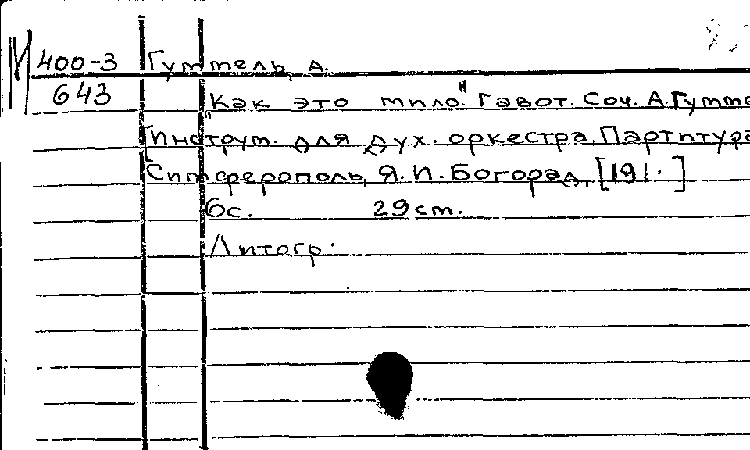 М 400-3 Гуттель, А.
643 "Как это мило." Гавот. Соч. А. Гутте
[Инструм. для дух. оркестра. Партитура
Симферополь, Я. И. Богорад, [191. ]
6с. 29 см.
Литогр.